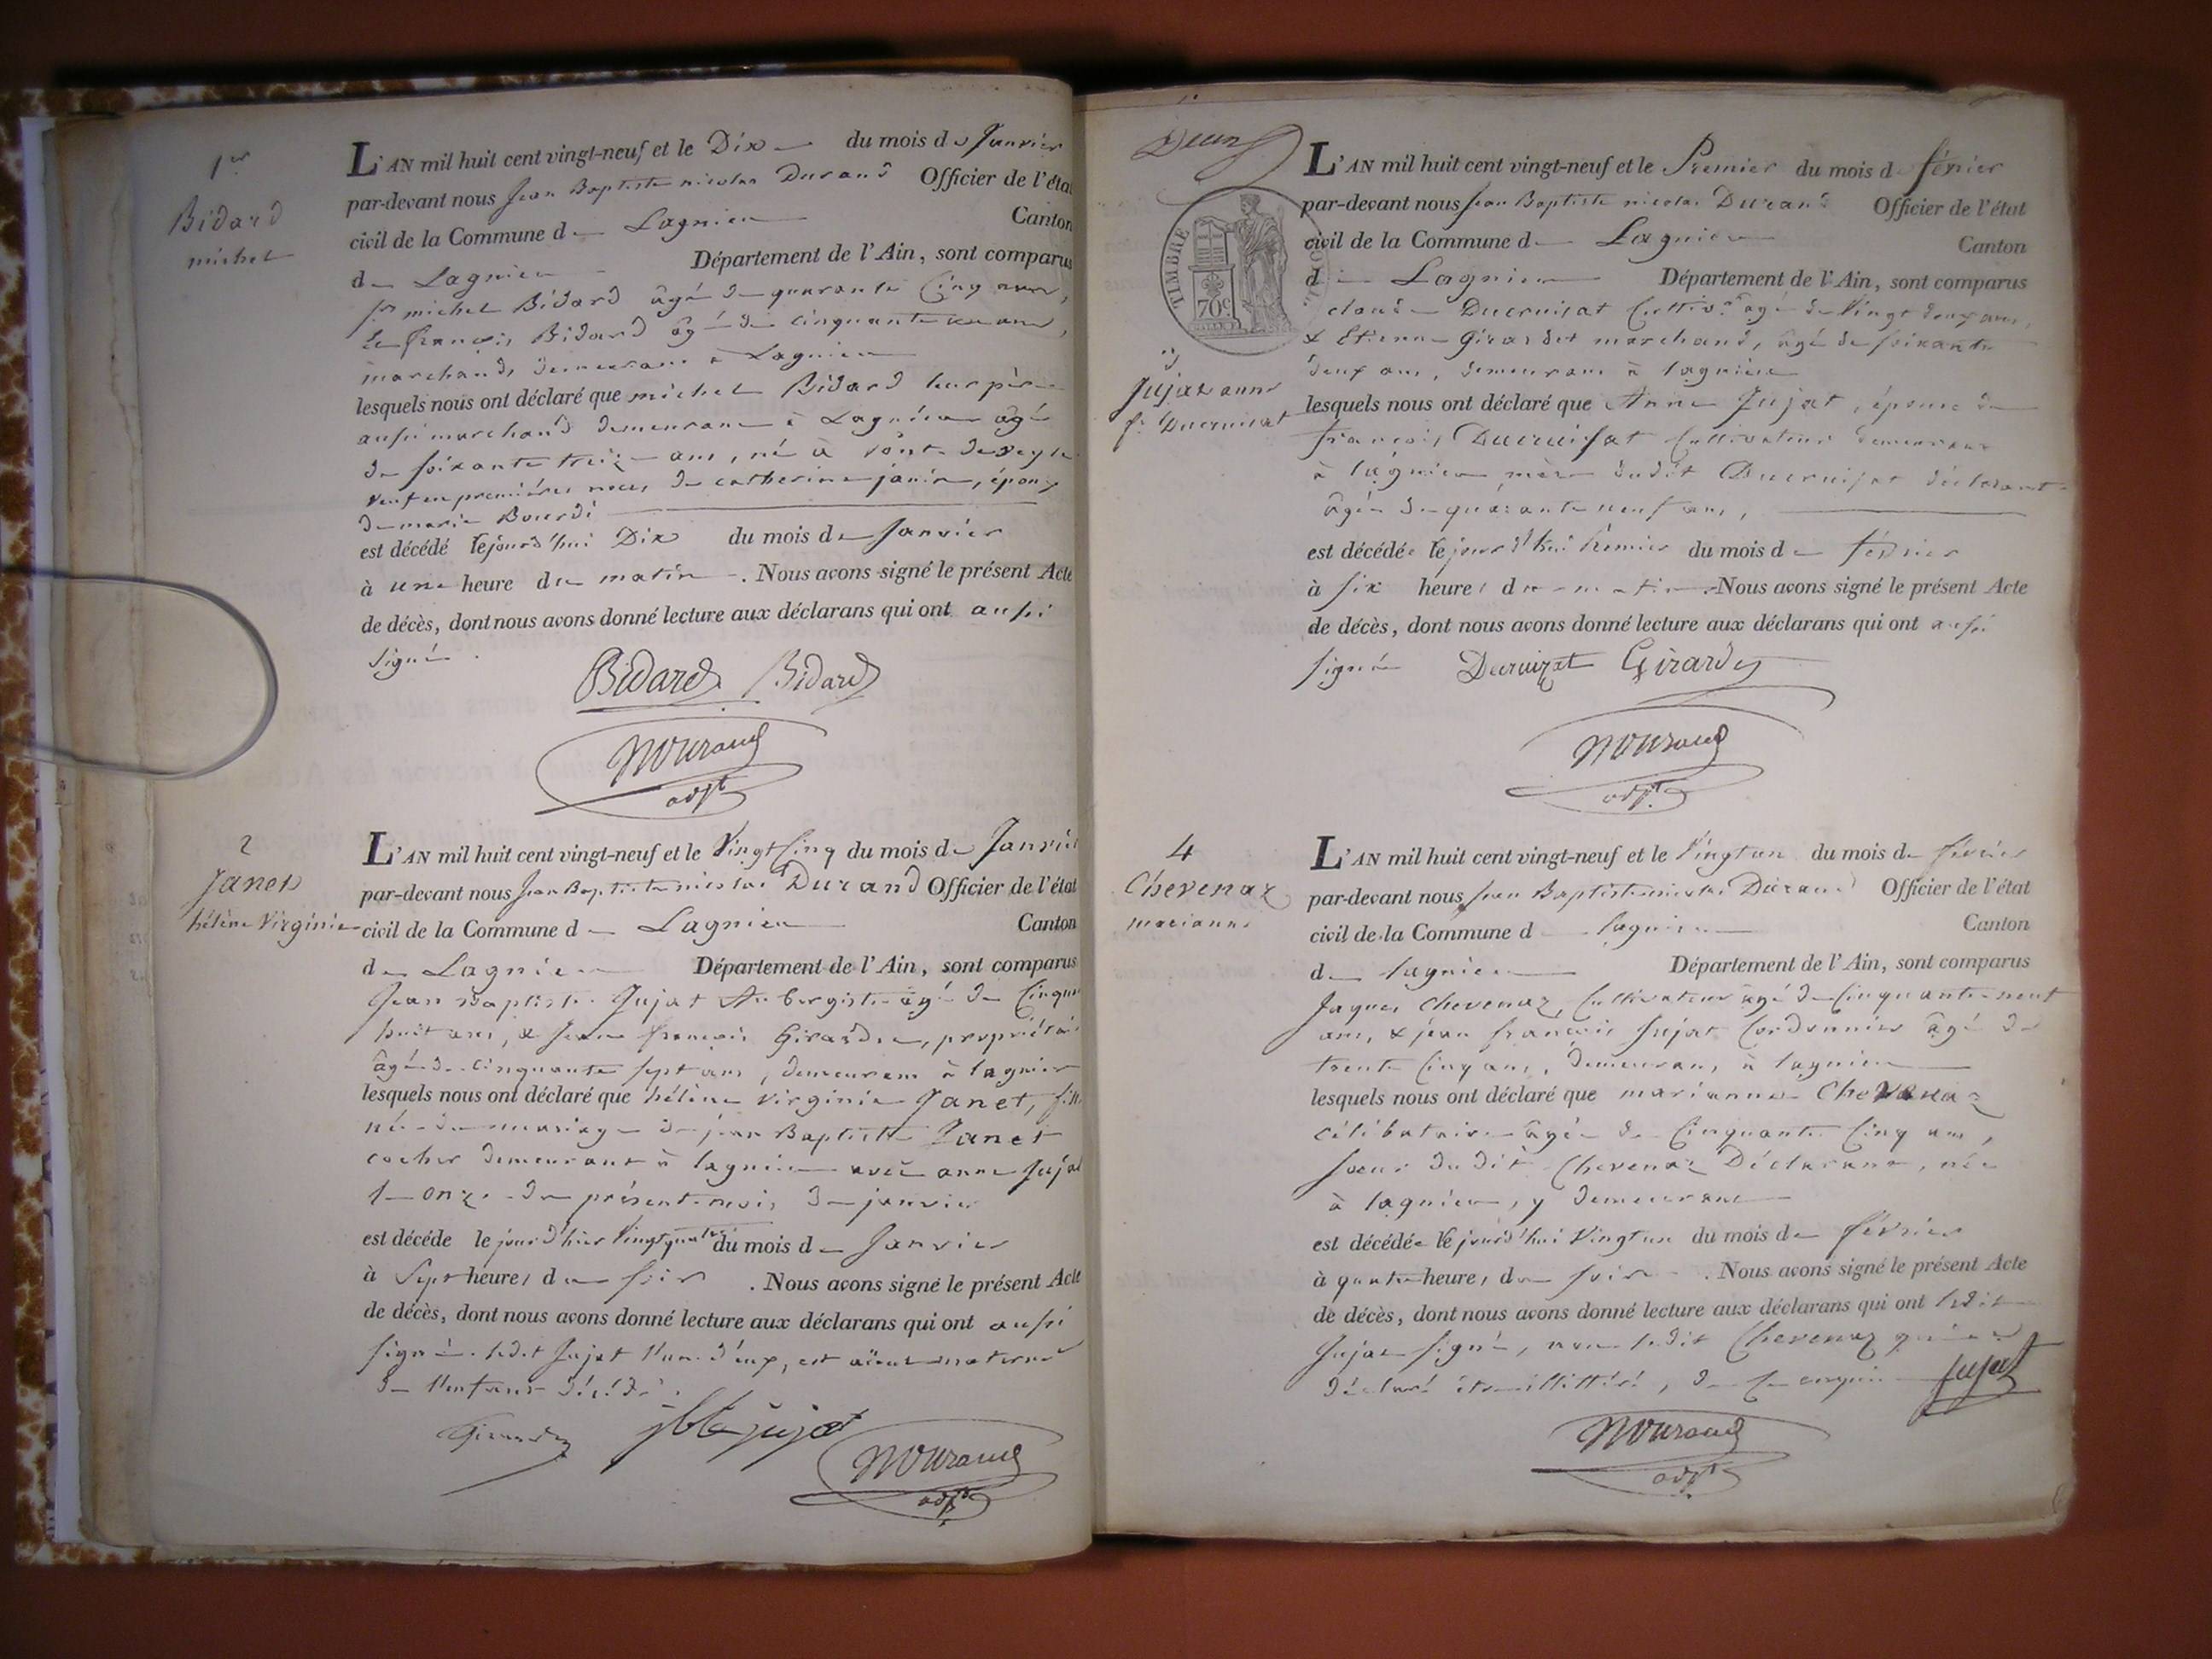 1er
Bidard
michel
L'AN mil huit cent vingt-neuf et le Dix du mois de Janvier
par-devant nous Jean Baptiste nicolas Durand Officier de l'état
civil de la Commune de Lagnieu Canton
de Lagnieu Département de l'Ain, sont comparus
michel Bidard âgé de quarante Cinq ans,
& françois Bidard âgé de cinquante ans,
marchands, demeurans à Lagnieu
lesquels nous ont déclaré que michel Bidard leur père
aussi marchand demeurant à Lagnieu âgé
de soixante treize ans, né à pont de veyle
veuf en premières noces de catherine janin, époux
de marie Bourdi
est décédé le jourd'hui Dix du mois de Janvier
à une heure du matin. Nous avons signé le présent Acte
de décès, dont nous avons donné lecture aux déclarans qui ont aussi
signé.
Bidard Bidard
NDurand
adjt
2
Janet
hélène Virginie
L'AN mil huit cent vingt-neuf et le Vingt Cinq du mois de Janvier
par-devant nous Jean Baptiste nicolas Durand Officier de l'état
civil de la Commune de Lagnieu Canton
de Lagnieu Département de l'Ain, sont comparus
Jean Baptiste Jujat Aubergiste âgé de Cinquante
huit ans, & Jean françois Girardet, propriétaire
âgé de cinquante sept ans, demeurans à lagnieu
lesquels nous ont déclaré que hélène virginie Janet, fille
née du mariage de jean Baptiste Janet
cocher demeurant à lagnieu avec anne Jujat
le onze du présent mois de janvier
est décédé le jour d'hier Vingt quatre du mois de Janvier
à Sept heures du soir. Nous avons signé le présent Acte
de décès, dont nous avons donné lecture aux déclarans qui ont aussi
signé. ledit Jujat l'un d'eux, est aïeul maternel
de l'enfant décédé.
Girardet jbte jujat
NDurand
adjt
L'AN mil huit cent vingt-neuf et le Premier du mois de février
par-devant nous Jean Baptiste nicolas Durand Officier de l'état
civil de la Commune de Lagnieu Canton
de Lagnieu Département de l'Ain, sont comparus
claude Ducruisat Cultivr âgé de Vingt deux ans,
& Etienne Girardet marchand, âgé de soixante
deux ans, demeurans à lagnieu
TIMBRE
70c
3
Jujat anne
fe Ducruisat
lesquels nous ont déclaré que Anne Jujat, épouse de
françois Ducruisat Cultivateur demeurant
à lagnieu mère dudit Ducruisat déclarant
âgée de quarante neuf ans,
est décédée le jourd'hui Premier du mois de février
à six heures du matin. Nous avons signé le présent Acte
de décès, dont nous avons donné lecture aux déclarans qui ont aussi
signé Ducruizat Girardet
NDurand
adjt
4
Chevenaz
marianne
L'AN mil huit cent vingt-neuf et le Vingt un du mois de février
par-devant nous Jean Baptiste nicolas Durand Officier de l'état
civil de la Commune de lagnieu Canton
de lagnieu Département de l'Ain, sont comparus
Jaques Chevenaz, Cultivateur âgé de Cinquante neuf
ans, & jean françois Jujat Cordonnier âgé de
trente Cinq ans, demeurans à lagnieu
lesquels nous ont déclaré que marianne Chevenaz
célibataire âgée de Cinquante Cinq ans,
soeur dudit Chevenaz Déclarant, née
à lagnieu, y demeurant
est décédée le jourd'hui Vingt un du mois de février
à quatre heures du soir. Nous avons signé le présent Acte
de décès, dont nous avons donné lecture aux déclarans qui ont ledit
Jujat signé, non ledit Chevenaz qui a
déclaré être illittéré, de ce enquis. Jujat
NDurand
adjt